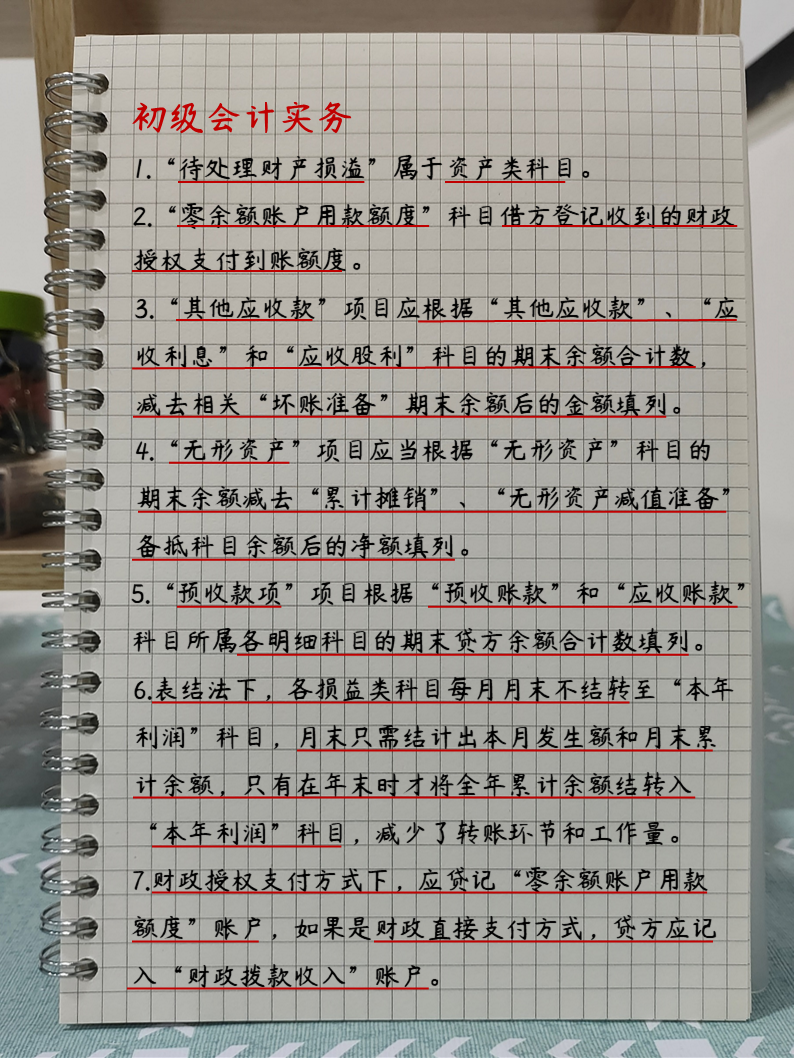 初级会计实务
1.“待处理财产损溢”属于资产类科目。
2.“零余额账户用款额度”科目借方登记收到的财政
授权支付到账额度。
3.“其他应收款”项目应根据“其他应收款”、“应
收利息”和“应收股利”科目的期末余额合计数，
减去相关“坏账准备”期末余额后的金额填列。
4.“无形资产”项目应当根据“无形资产”科目的
期末余额减去“累计摊销”、“无形资产减值准备”
备抵科目余额后的净额填列。
5.“预收款项”项目根据“预收账款”和“应收账款”
科目所属各明细科目的期末贷方余额合计数填列。
6.表结法下，各损益类科目每月月末不结转至“本年
利润”科目，月末只需结计出本月发生额和月末累
计余额，只有在年末时才将全年累计余额结转入
“本年利润”科目，减少了转账环节和工作量。
7.财政授权支付方式下，应贷记“零余额账户用款
额度”账户，如果是财政直接支付方式，贷方应记
入“财政拨款收入”账户。